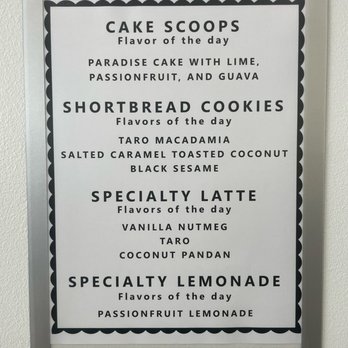 CAKE SCOOPS
Flavor of the day
PARADISE CAKE WITH LIME,
PASSIONFRUIT, AND GUAVA
SHORTBREAD COOKIES
Flavors of the day
TARO MACADAMIA
SALTED CARAMEL TOASTED COCONUT
BLACK SESAME
SPECIALTY LATTE
Flavors of the day
VANILLA NUTMEG
TARO
COCONUT PANDAN
SPECIALTY LEMONADE
Flavors of the day
PASSIONFRUIT LEMONADE